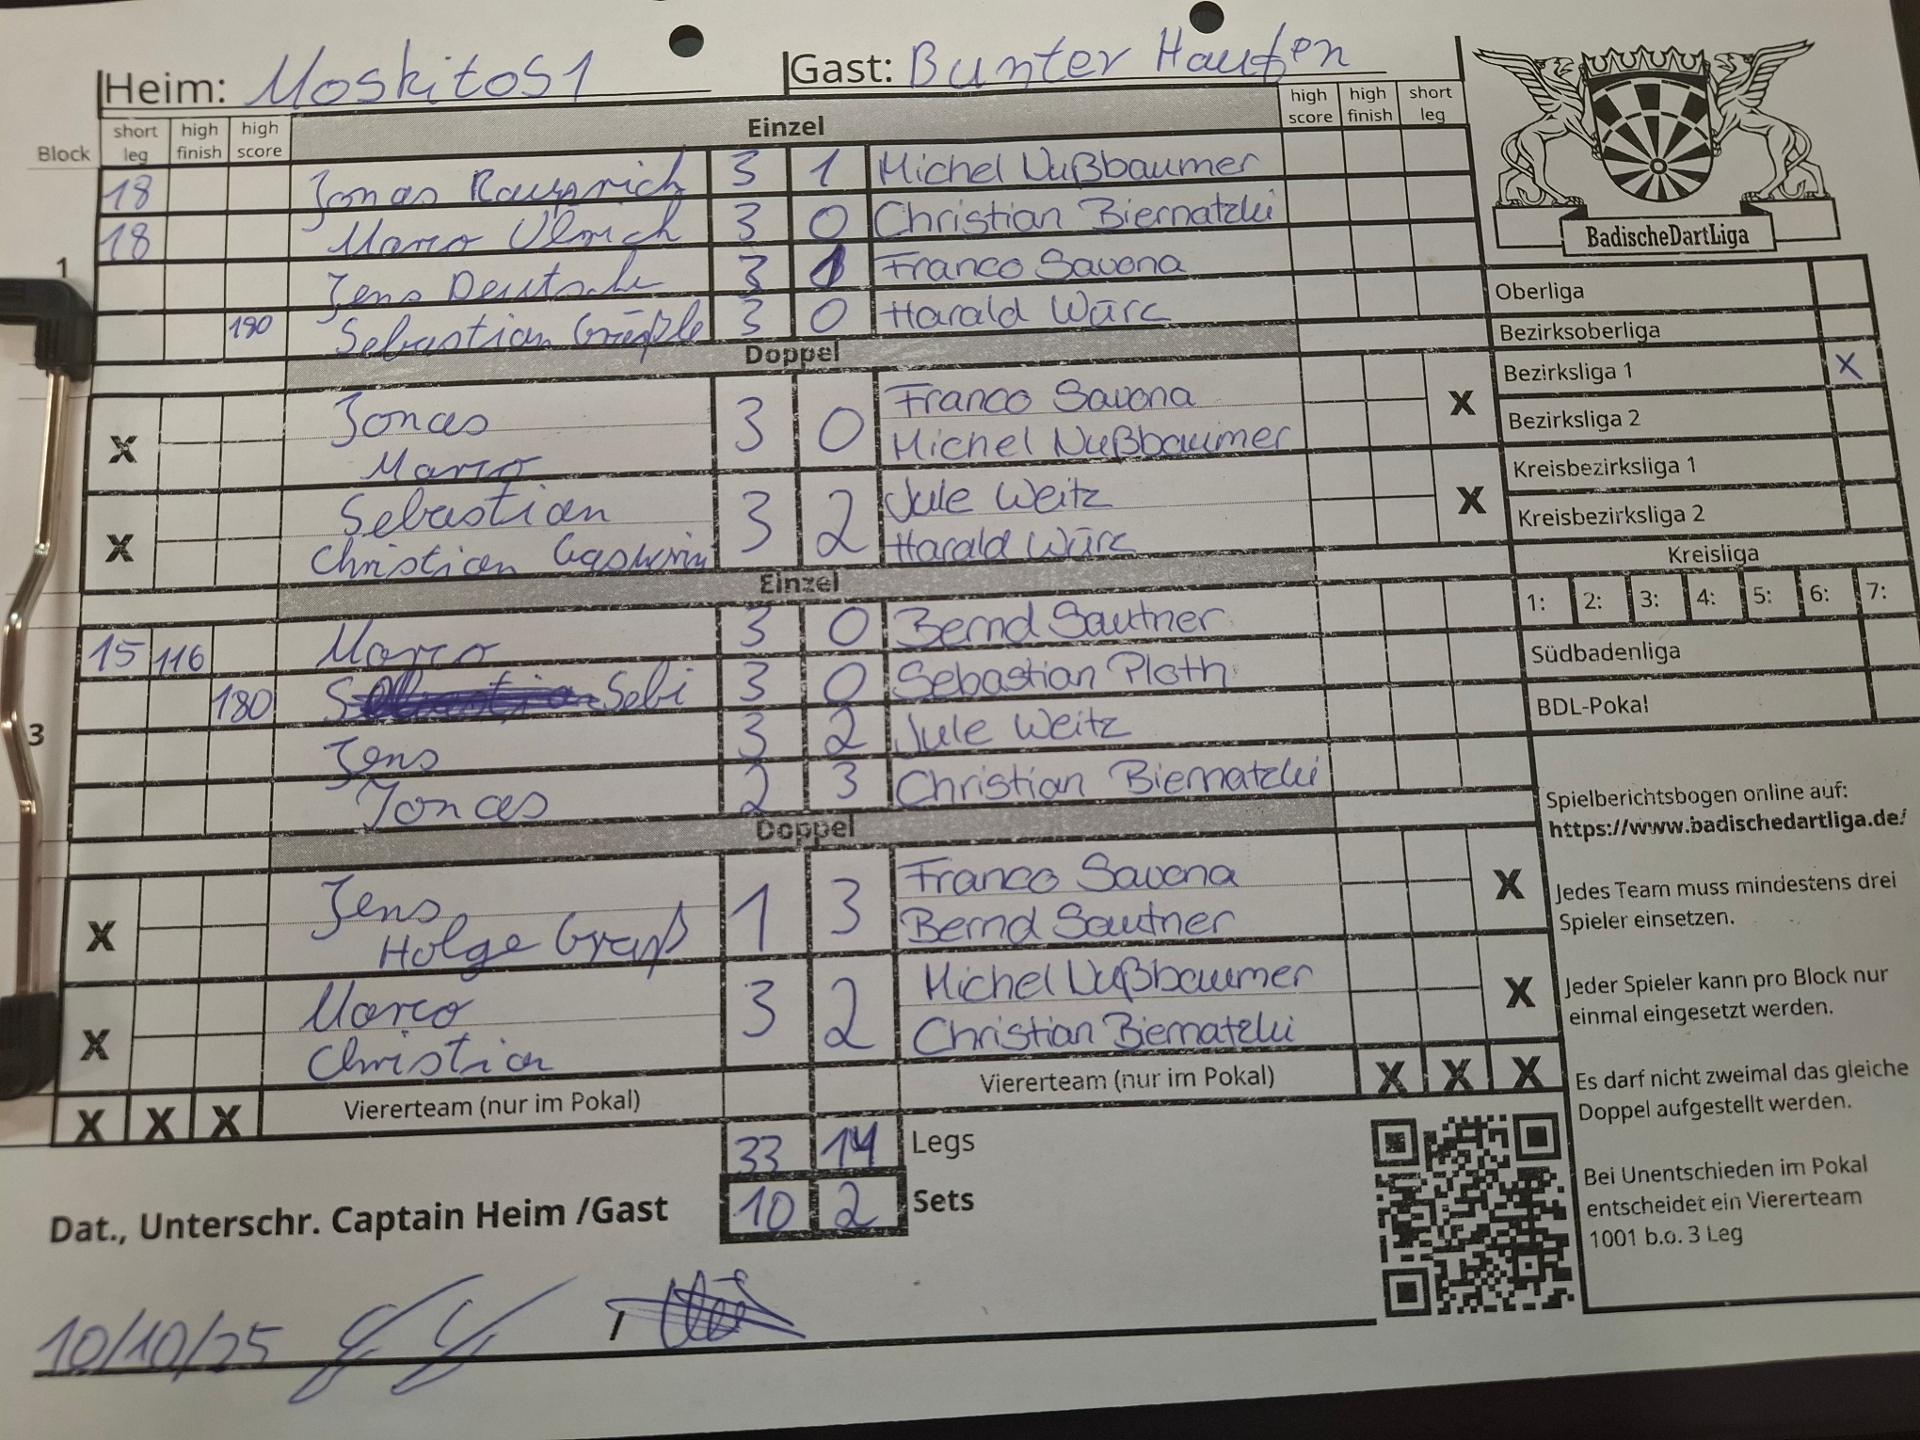 Heim: Moskitos 1 Gast: Bunter Haufen
Block short leg high finish high score Einzel high score high finish short leg
18 Jonas Rauprich 3 1 Michel Nußbaumer
18 Marco Ulrich 3 0 Christian Biernatzki
1 Jens Deutsch 3 1 Franco Savona
180 Sebastian 3 0 Harald Würc
Doppel
X Jonas 3 0 Franco Savona X
Marco Michel Nußbaumer
X Sebastian 3 2 Jule Weitz X
Christian Harald Würc
Einzel
15 116 Marco 3 0 Bernd Sautner
180 Sebi 3 0 Sebastian Ploth
3 Jens 3 2 Jule Weitz
Jonas 2 3 Christian Biernatzki
Doppel
X Jens 1 3 Franco Savona X
Holge Bernd Sautner
X Marco 3 2 Michel Nußbaumer X
Christian Christian Biernatzki
X X X Viererteam (nur im Pokal) Viererteam (nur im Pokal) X X X
33 14 Legs
10 2 Sets
Dat., Unterschr. Captain Heim /Gast
10/10/25
BadischeDartLiga
Oberliga
Bezirksoberliga
Bezirksliga 1 X
Bezirksliga 2
Kreisbezirksliga 1
Kreisbezirksliga 2
Kreisliga
1: 2: 3: 4: 5: 6: 7:
Südbadenliga
BDL-Pokal
Spielberichtsbogen online auf:
https://www.badischedartliga.de/
Jedes Team muss mindestens drei
Spieler einsetzen.
Jeder Spieler kann pro Block nur
einmal eingesetzt werden.
Es darf nicht zweimal das gleiche
Doppel aufgestellt werden.
Bei Unentschieden im Pokal
entscheidet ein Viererteam
1001 b.o. 3 Leg